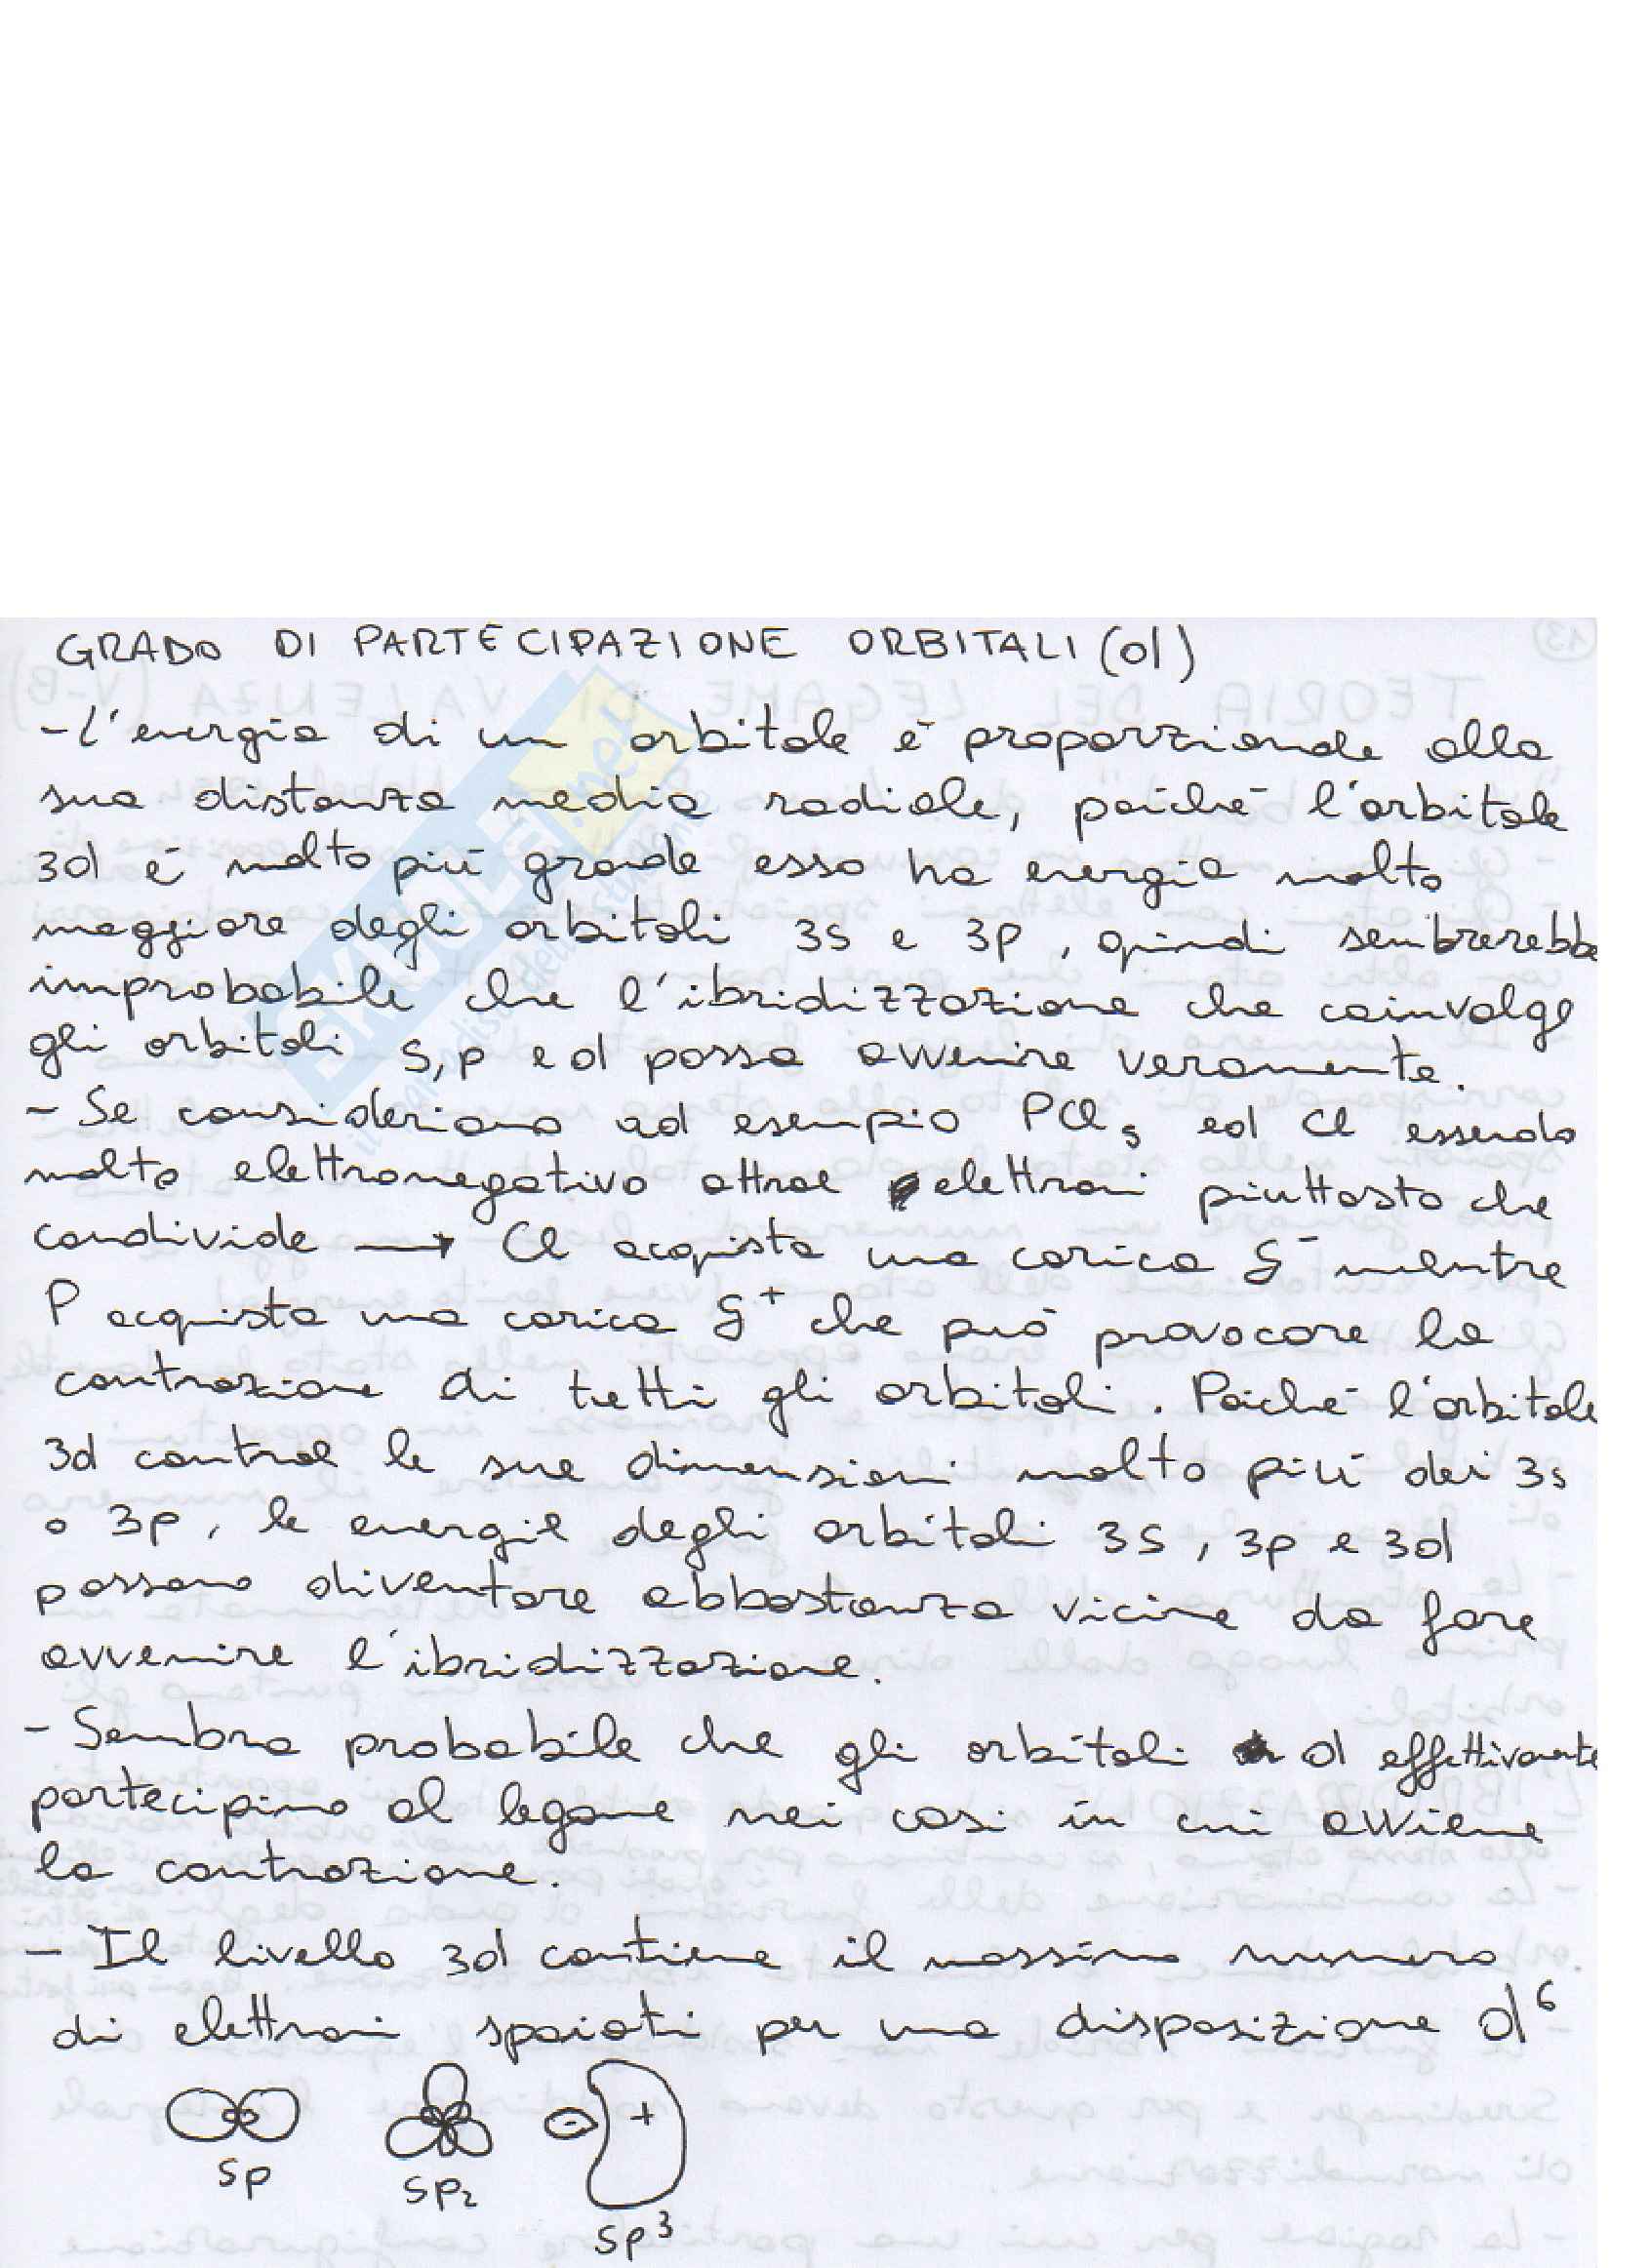 GRADO DI PARTECIPAZIONE ORBITALI (d)
- L'energia di un orbitale è proporzionale alla
sua distanza media radiale, poichè l'orbitale
3d è molto più grande esso ha energia molto
maggiore degli orbitali 3s e 3p, quindi sembrerebbe
improbabile che l'ibridizzazione che coinvolge
gli orbitali s, p e d possa avvenire veramente.
- Se consideriamo ad esempio PCl5 ed Cl essendo
molto elettronegativo attrae elettroni piuttosto che
condivide → Cl acquista una carica δ⁻ mentre
P acquista una carica δ⁺ che può provocare la
contrazione di tutti gli orbitali. Poichè l'orbitale
3d contrae le sue dimensioni molto più dei 3s
o 3p, le energie degli orbitali 3s, 3p e 3d
possono diventare abbastanza vicine da fare
avvenire l'ibridizzazione.
- Sembra probabile che gli orbitali d effettivamente
partecipino al legame nei casi in cui avviene
la contrazione.
- Il livello 3d contiene il massimo numero
di elettroni spaiati per una disposizione d⁶
- +
sp sp₂ sp³
SKUOLA.net
il paradiso dello studente